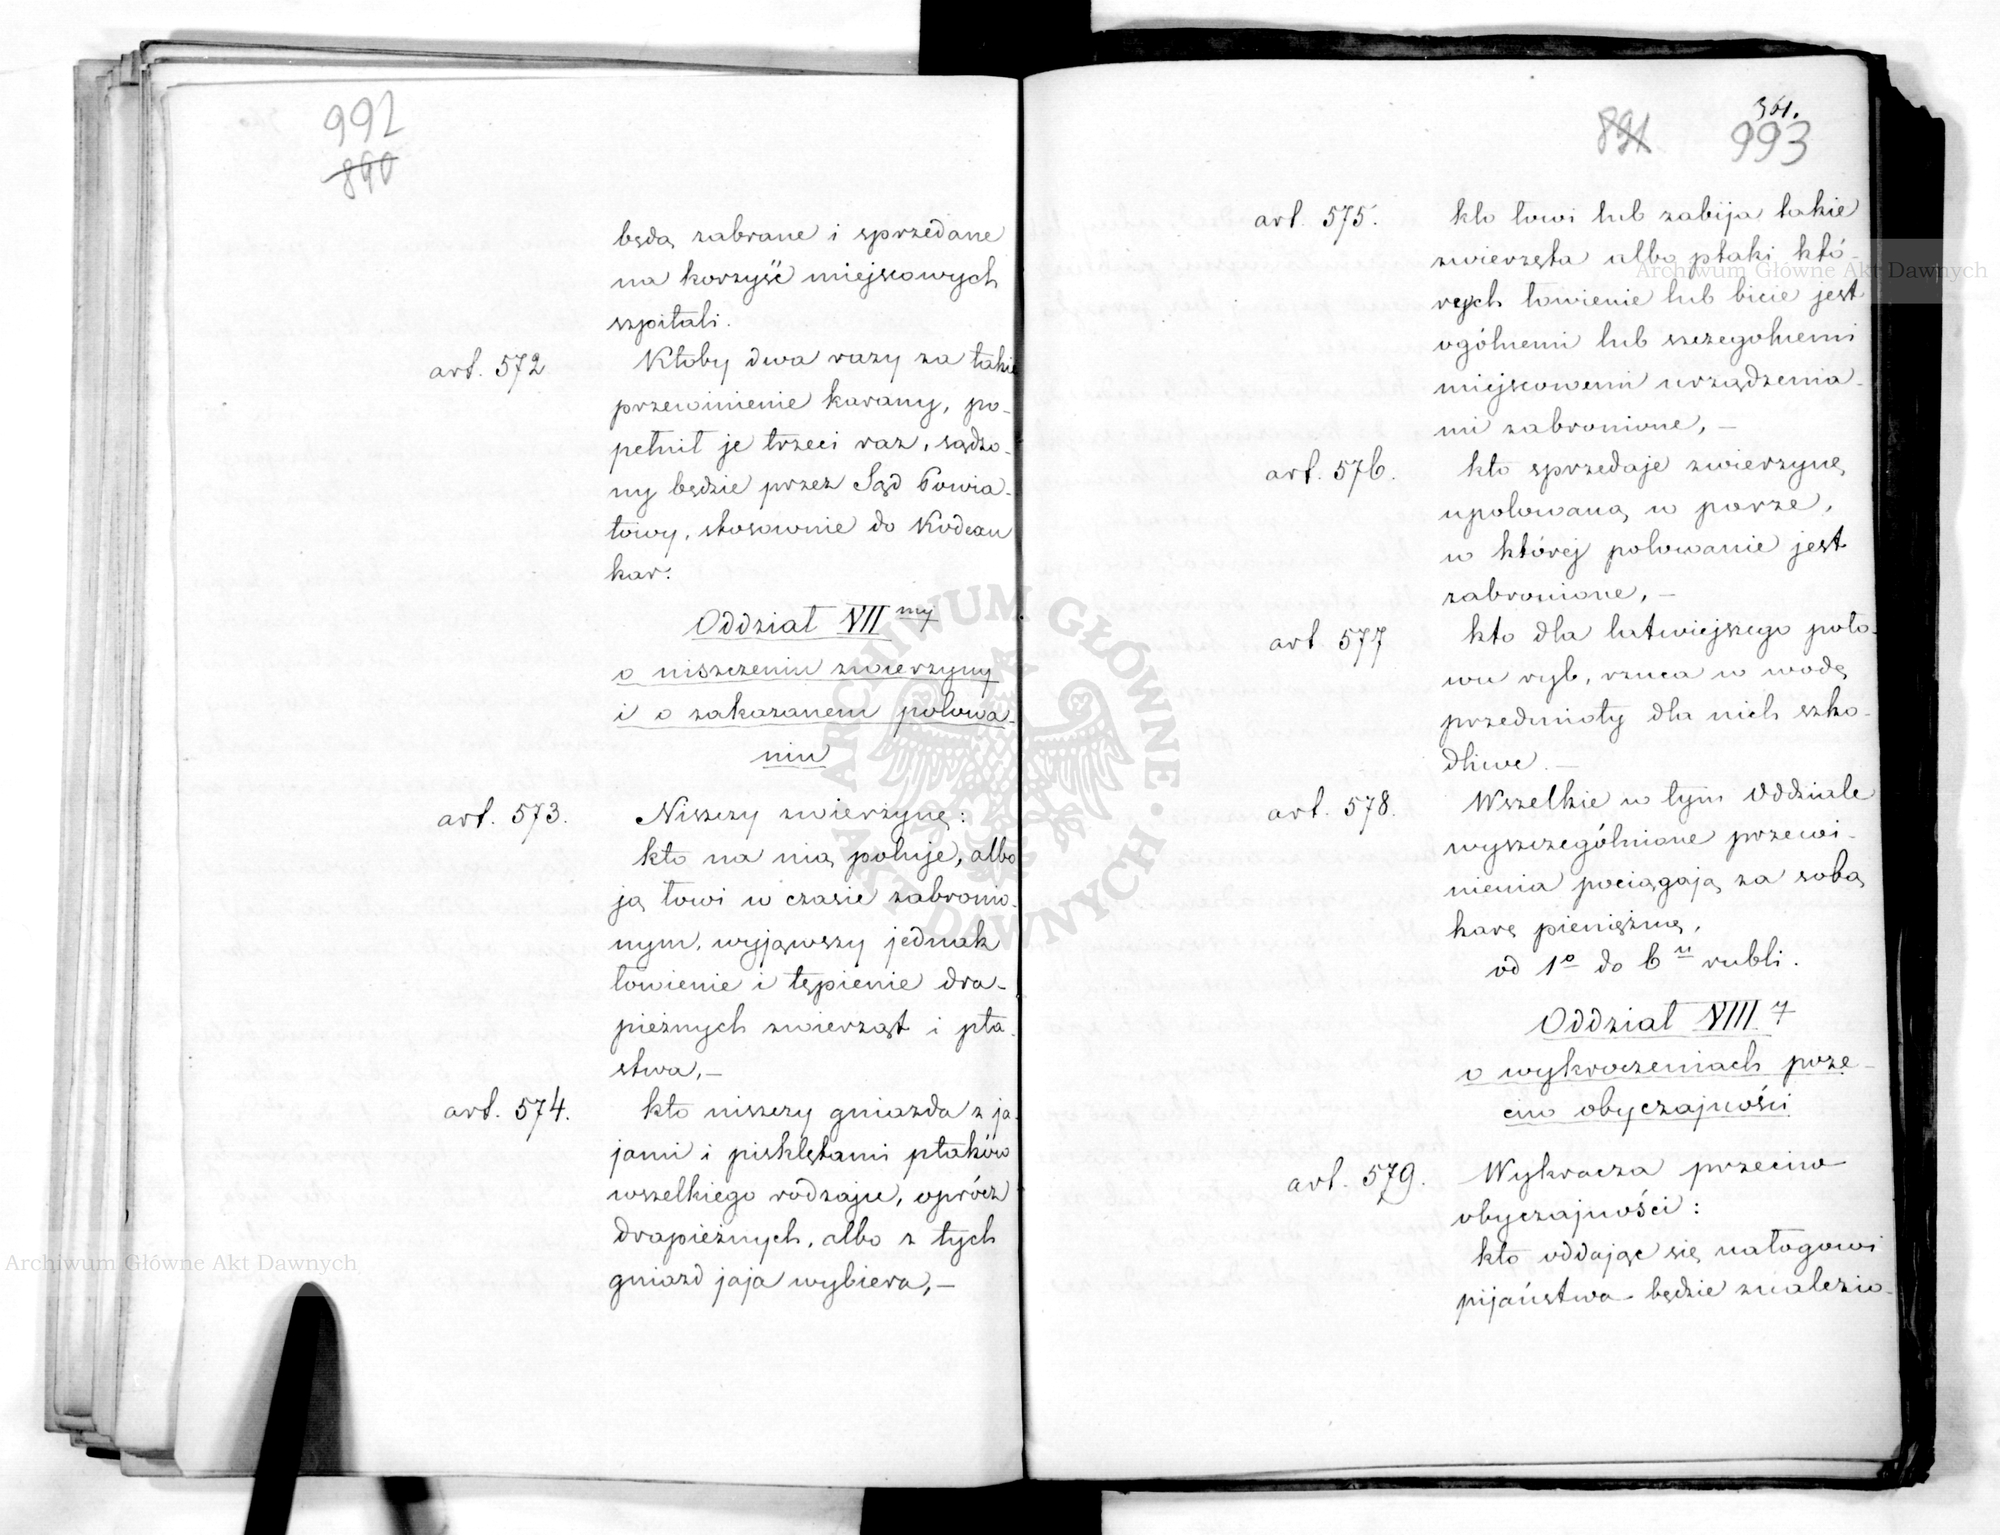 992
890
będą zabrane i sprzedane
na korzyść miejscowych
szpitali.
art. 572 Ktoby dwa razy za takie
przewinienie karany, po-
pełnił je trzeci raz, sądzo-
ny będzie przez Sąd Powia-
towy, stosownie do Kodexu
kar.
Oddział VII my
o niszczeniu zwierzyny
i o zakazanem polowa-
niu
art. 573. Niszczy zwierzynę:
kto na nią poluje, albo
ją łowi w czasie zabronio-
nym, wyjąwszy jednak
łowienie i tępienie dra-
pieżnych zwierząt i pta-
stwa, —
art. 574. kto niszczy gniazda z ja-
jami i pisklętami ptaków
wszelkiego rodzaju, oprócz
drapieżnych, albo z tych
gniazd jaja wybiera, —
361.
891 993
art. 575. kto łowi lub zabija takie
zwierzęta albo ptaki, któ-
rych łowienie lub bicie jest
ogólnemi lub szczegolnemi
miejscowemi urządzenia-
mi zabronione, —
art. 576. kto sprzedaje zwierzynę
upolowaną w porze,
w której polowanie jest
zabronione, —
art 577 kto dla łatwiejszego poło-
wu ryb, rzuca w wodę
przedmioty dla nich szko-
dliwe. —
art. 578. Wszelkie w tym Oddziale
wyszczególnione przewi-
nienia pociągają za sobą
karę pieniężną,
od 1o do 6u rubli.
Oddział VIII. y
o wykroczeniach prze-
ciw obyczajności
art. 579. Wykracza przeciw
obyczajności:
kto oddając się nałogowi
pijaństwa będzie znalezio-
Archiwum Główne Akt Dawnych
Archiwum Główne Akt Dawnych
ARCHIWUM GŁÓWNE AKT DAWNYCH